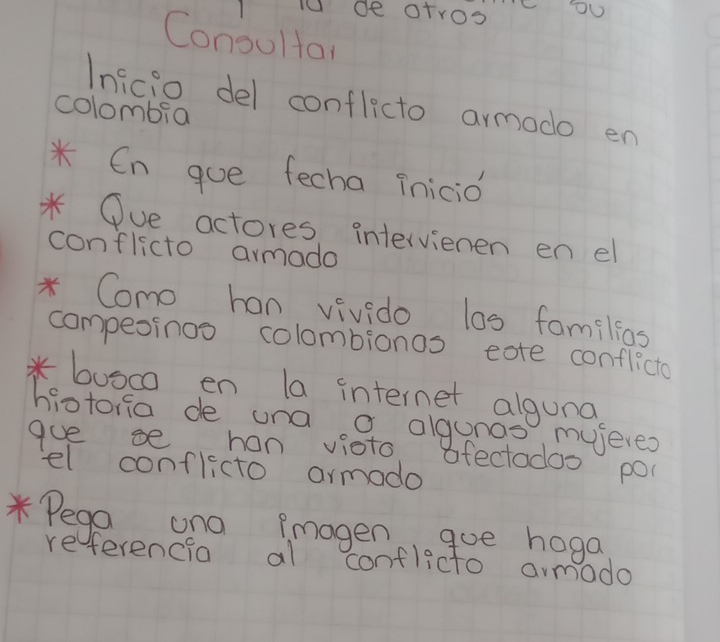 de otros
Consultar
Inicio del conflicto armado en
colombia
* En que fecha inició
* Que actores intervienen en el
conflicto armado
* Como han vivido las familias
campesinas colombianas este conflicto
* busca en la internet alguna
historia de una o algunas mujeres
que se han visto afectadas por
el conflicto armado
* Pega una imagen que haga
referencia al conflicto armado